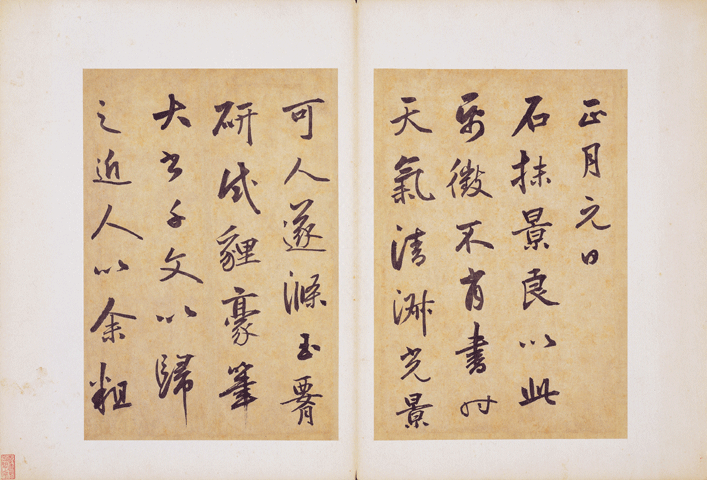 正月元日
石抹景良以此
紙徵不肖書時
天氣清淑光景
可人遂滌玉
研試貍豪筆
大書千文以歸
之近人以余粗